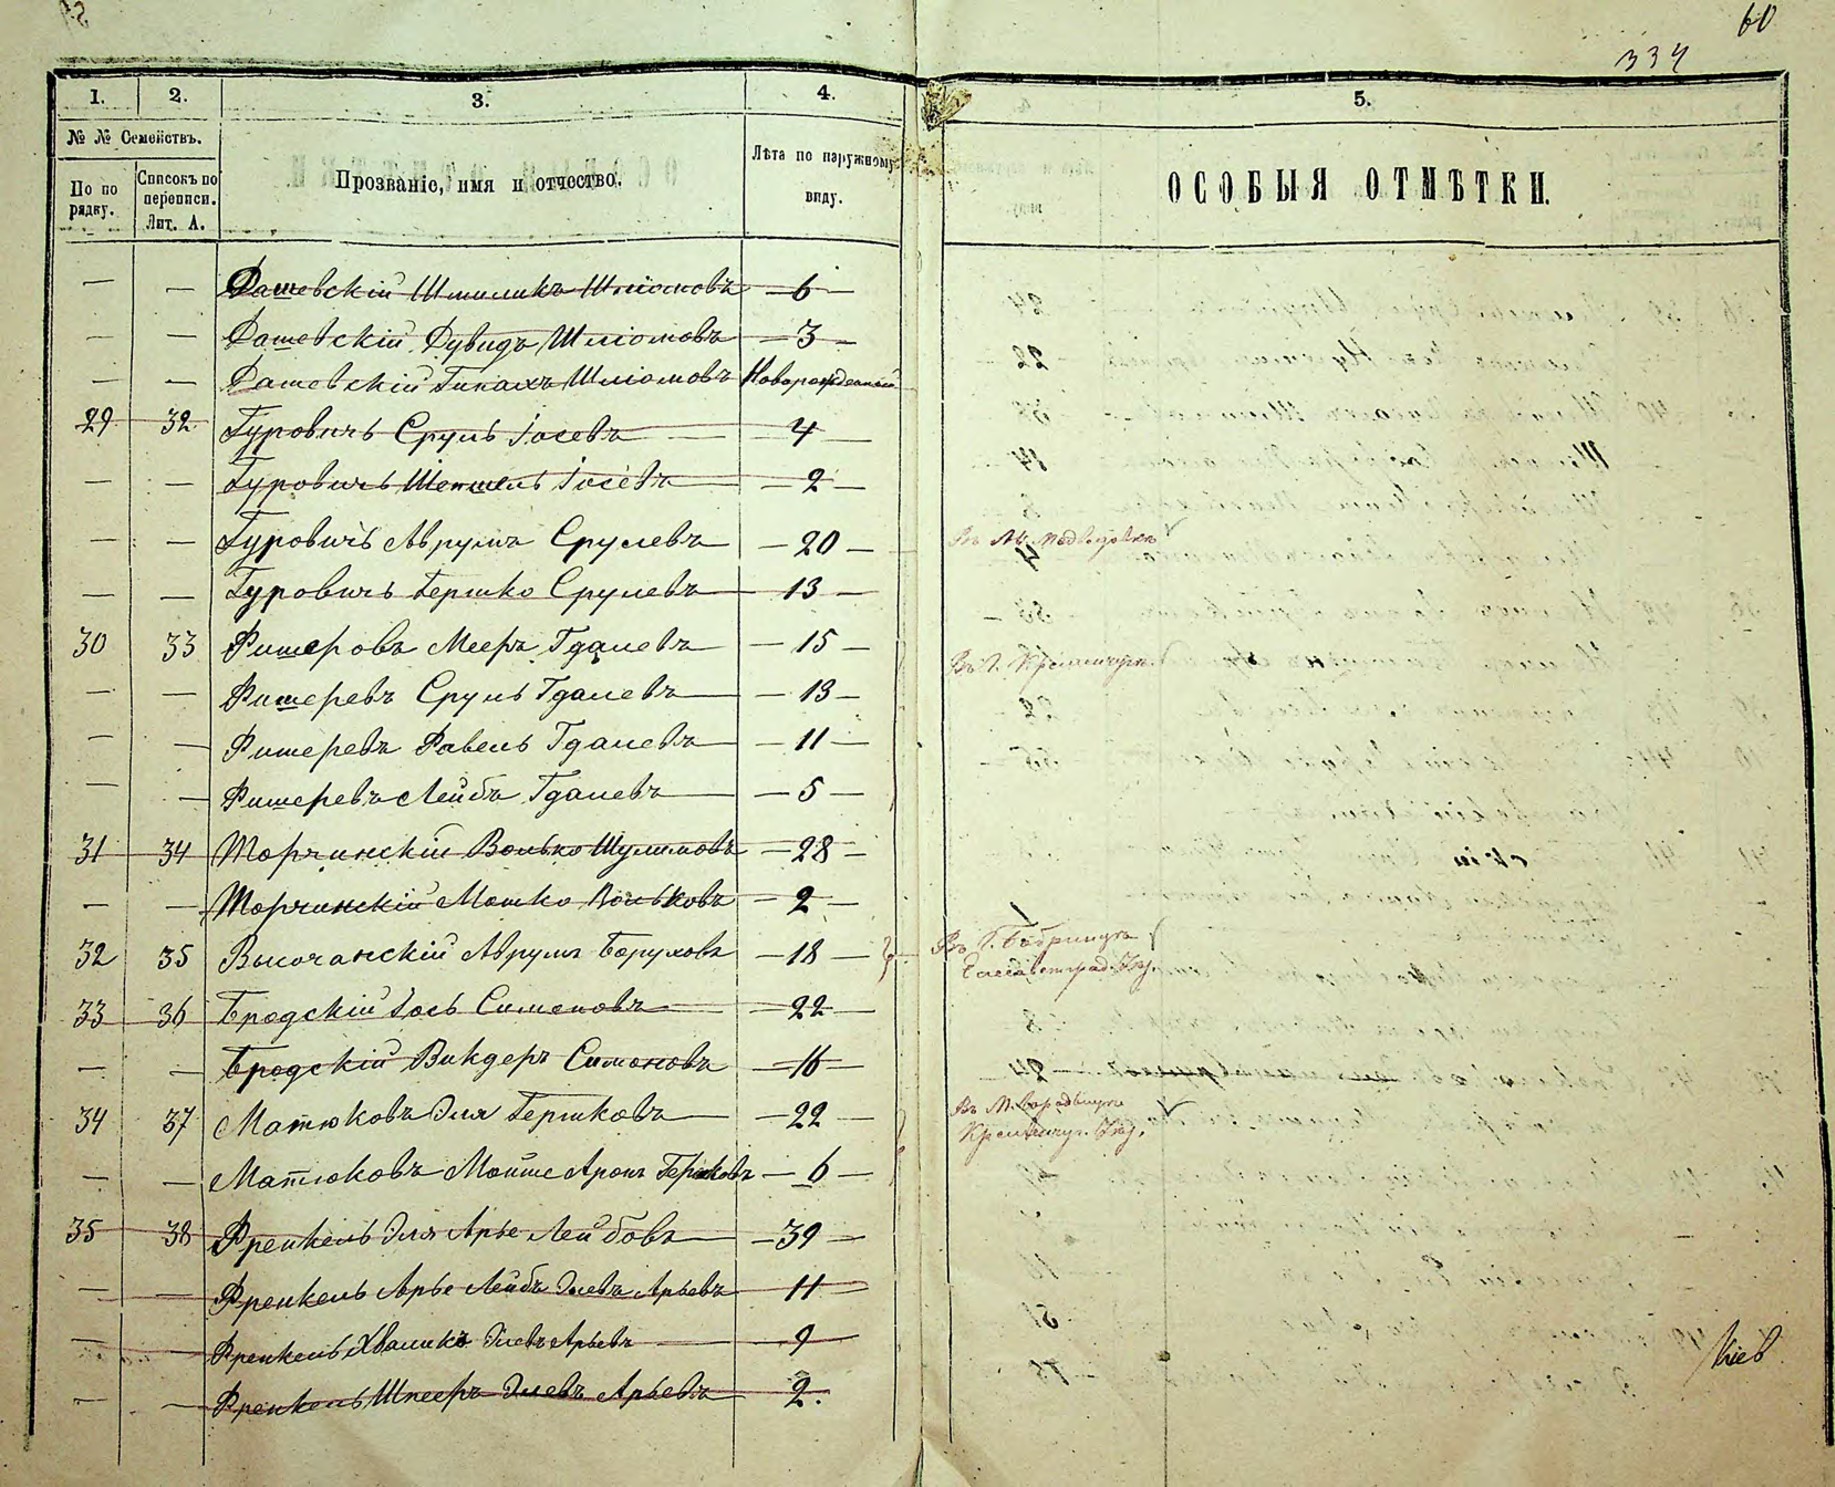 60
334
1. 2. 3. 4. 5.
№ № Семействъ.
По по
рядку.
Списокъ по
переписи.
Лит. А.
Прозваніе, имя и отчество.
Лѣта по наружному
виду.
ОСОБЫЯ ОТМѢТКИ.
— — Дашевскій Шмиликъ Шліомовъ — 6 —
— — Дашевскій Дувидъ Шліомовъ — 3 —
— — Дашевскій Шліомовъ Новорожденный
29 32 Гуровичъ Сруль Іосевъ — 4 —
— — Гуровичъ Шепшель Іосевъ — 2 —
— — Гуровичъ Аврумъ Срулевъ — 20 — Въ М. Медведовке
— — Гуровичъ Гершко Срулевъ — 13 —
30 33 Фишеровъ Мееръ Гдалевъ — 15 — Въ Г. Кременчуге.
— — Фишеревъ Сруль Гдалевъ — 13 —
— — Фишеревъ Фавель Гдалевъ — 11 —
— — Фишеревъ Лейбъ Гдалевъ — 5 —
31 34 Торчинскій Волько Шулимовъ — 28 —
— — Торчинскій Мошко Вольковъ — 2 —
32 35 Высочанскій Аврумъ Боруховъ — 18 — Въ Г. Бобринце
Елисаветград. Уѣз.
33 36 Бродскій Іось Симоновъ — 22 —
— — Бродскій Викдеръ Симоновъ — 16 —
34 37 Матюковъ Эля Гершковъ — 22 — Въ М.
Кременчуг. Уѣз.
— — Матюковъ Мойше Аронъ Гершковъ — 6 —
35 38 Френкель Эля Арье Лейбовъ — 39 —
— — Френкель Арье Лейбъ Элевъ Арьевъ 11
— — Френкель Хвалико Элевъ Арьевъ — 9
— — Френкель Шнееръ Элевъ Арьевъ — 2.
Кіев